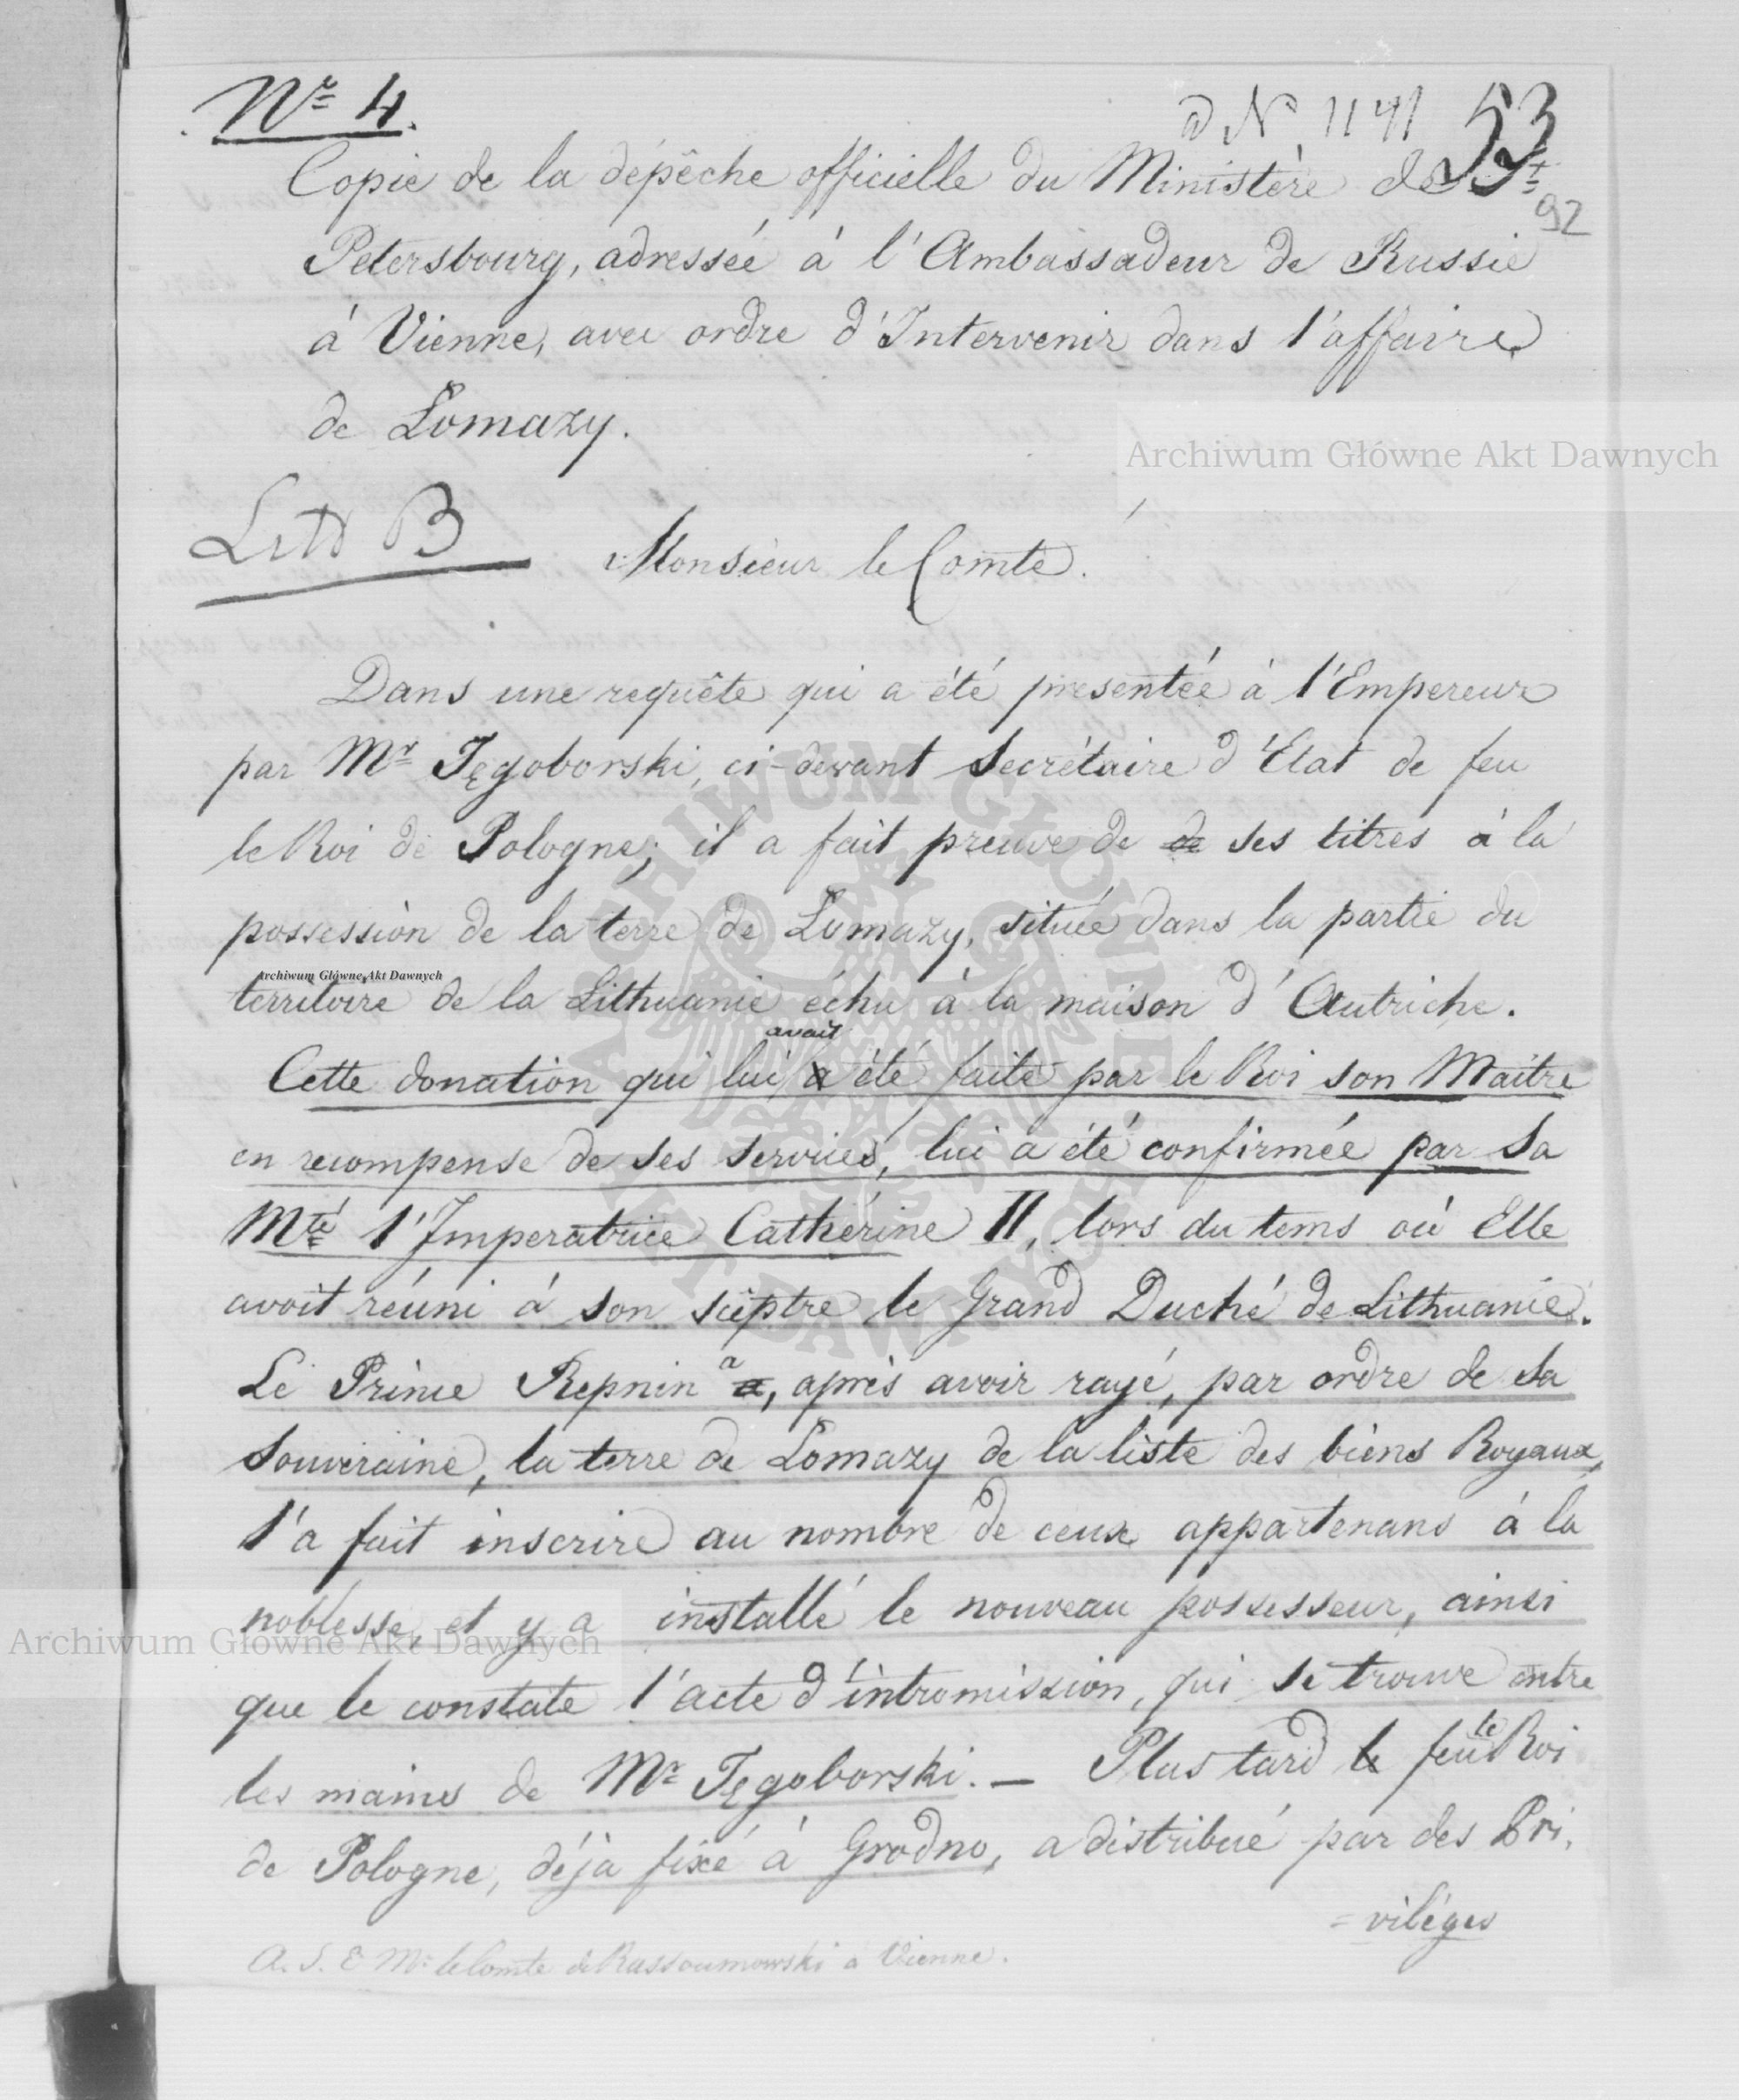 Nr 4.
a N 1141 53
Copie de la dépêche officielle du Ministère de St
92
Petersbourg, adressée à l'Ambassadeur de Russie
à Vienne, avec ordre d'Intervenir dans l'affaire
de Łomazy.
Archiwum Główne Akt Dawnych
Litt B
Monsieur le Comte.
Dans une requête qui a été presentée à l'Empereur
par Mr Tęgoborski, ci-devant Secrétaire d'Etat de feu
le Roi de Pologne; il a fait preuve de de ses titres à la
possession de la terre de Łomazy, située dans la partie du
Archiwum Główne Akt Dawnych
territoire de la Lithuanie échu à la maison d'Autriche.
avait
Cette donation qui lui a été faite par le Roi son Maitre
en recompense de ses services, lui a été confirmée par Sa
Mté l'Imperatrice Cathérine II, lors du tems où Elle
avoit réuni à son sceptre le Grand Duché de Lithuanie.
Le Prince Repnin a, après avoir rayé, par ordre de Sa
Souveraine, la terre de Łomazy de la liste des biens Royaux,
l'a fait inscrire au nombre de ceux appartenans à la
noblesse, et y a installé le nouveau possesseur, ainsi
Archiwum Główne Akt Dawnych
que le constate l'acte d'intromission, qui se trouve entre
les mains de Mr Tęgoborski. — Plus tard le feu le Roi
de Pologne, déjà fixé à Grodno, a distribué par des Pri-
=viléges
A. S. E Mr le Comte de Rassoumowski à Vienne.
ARCHIWUM GŁÓWNE AKT DAWNYCH